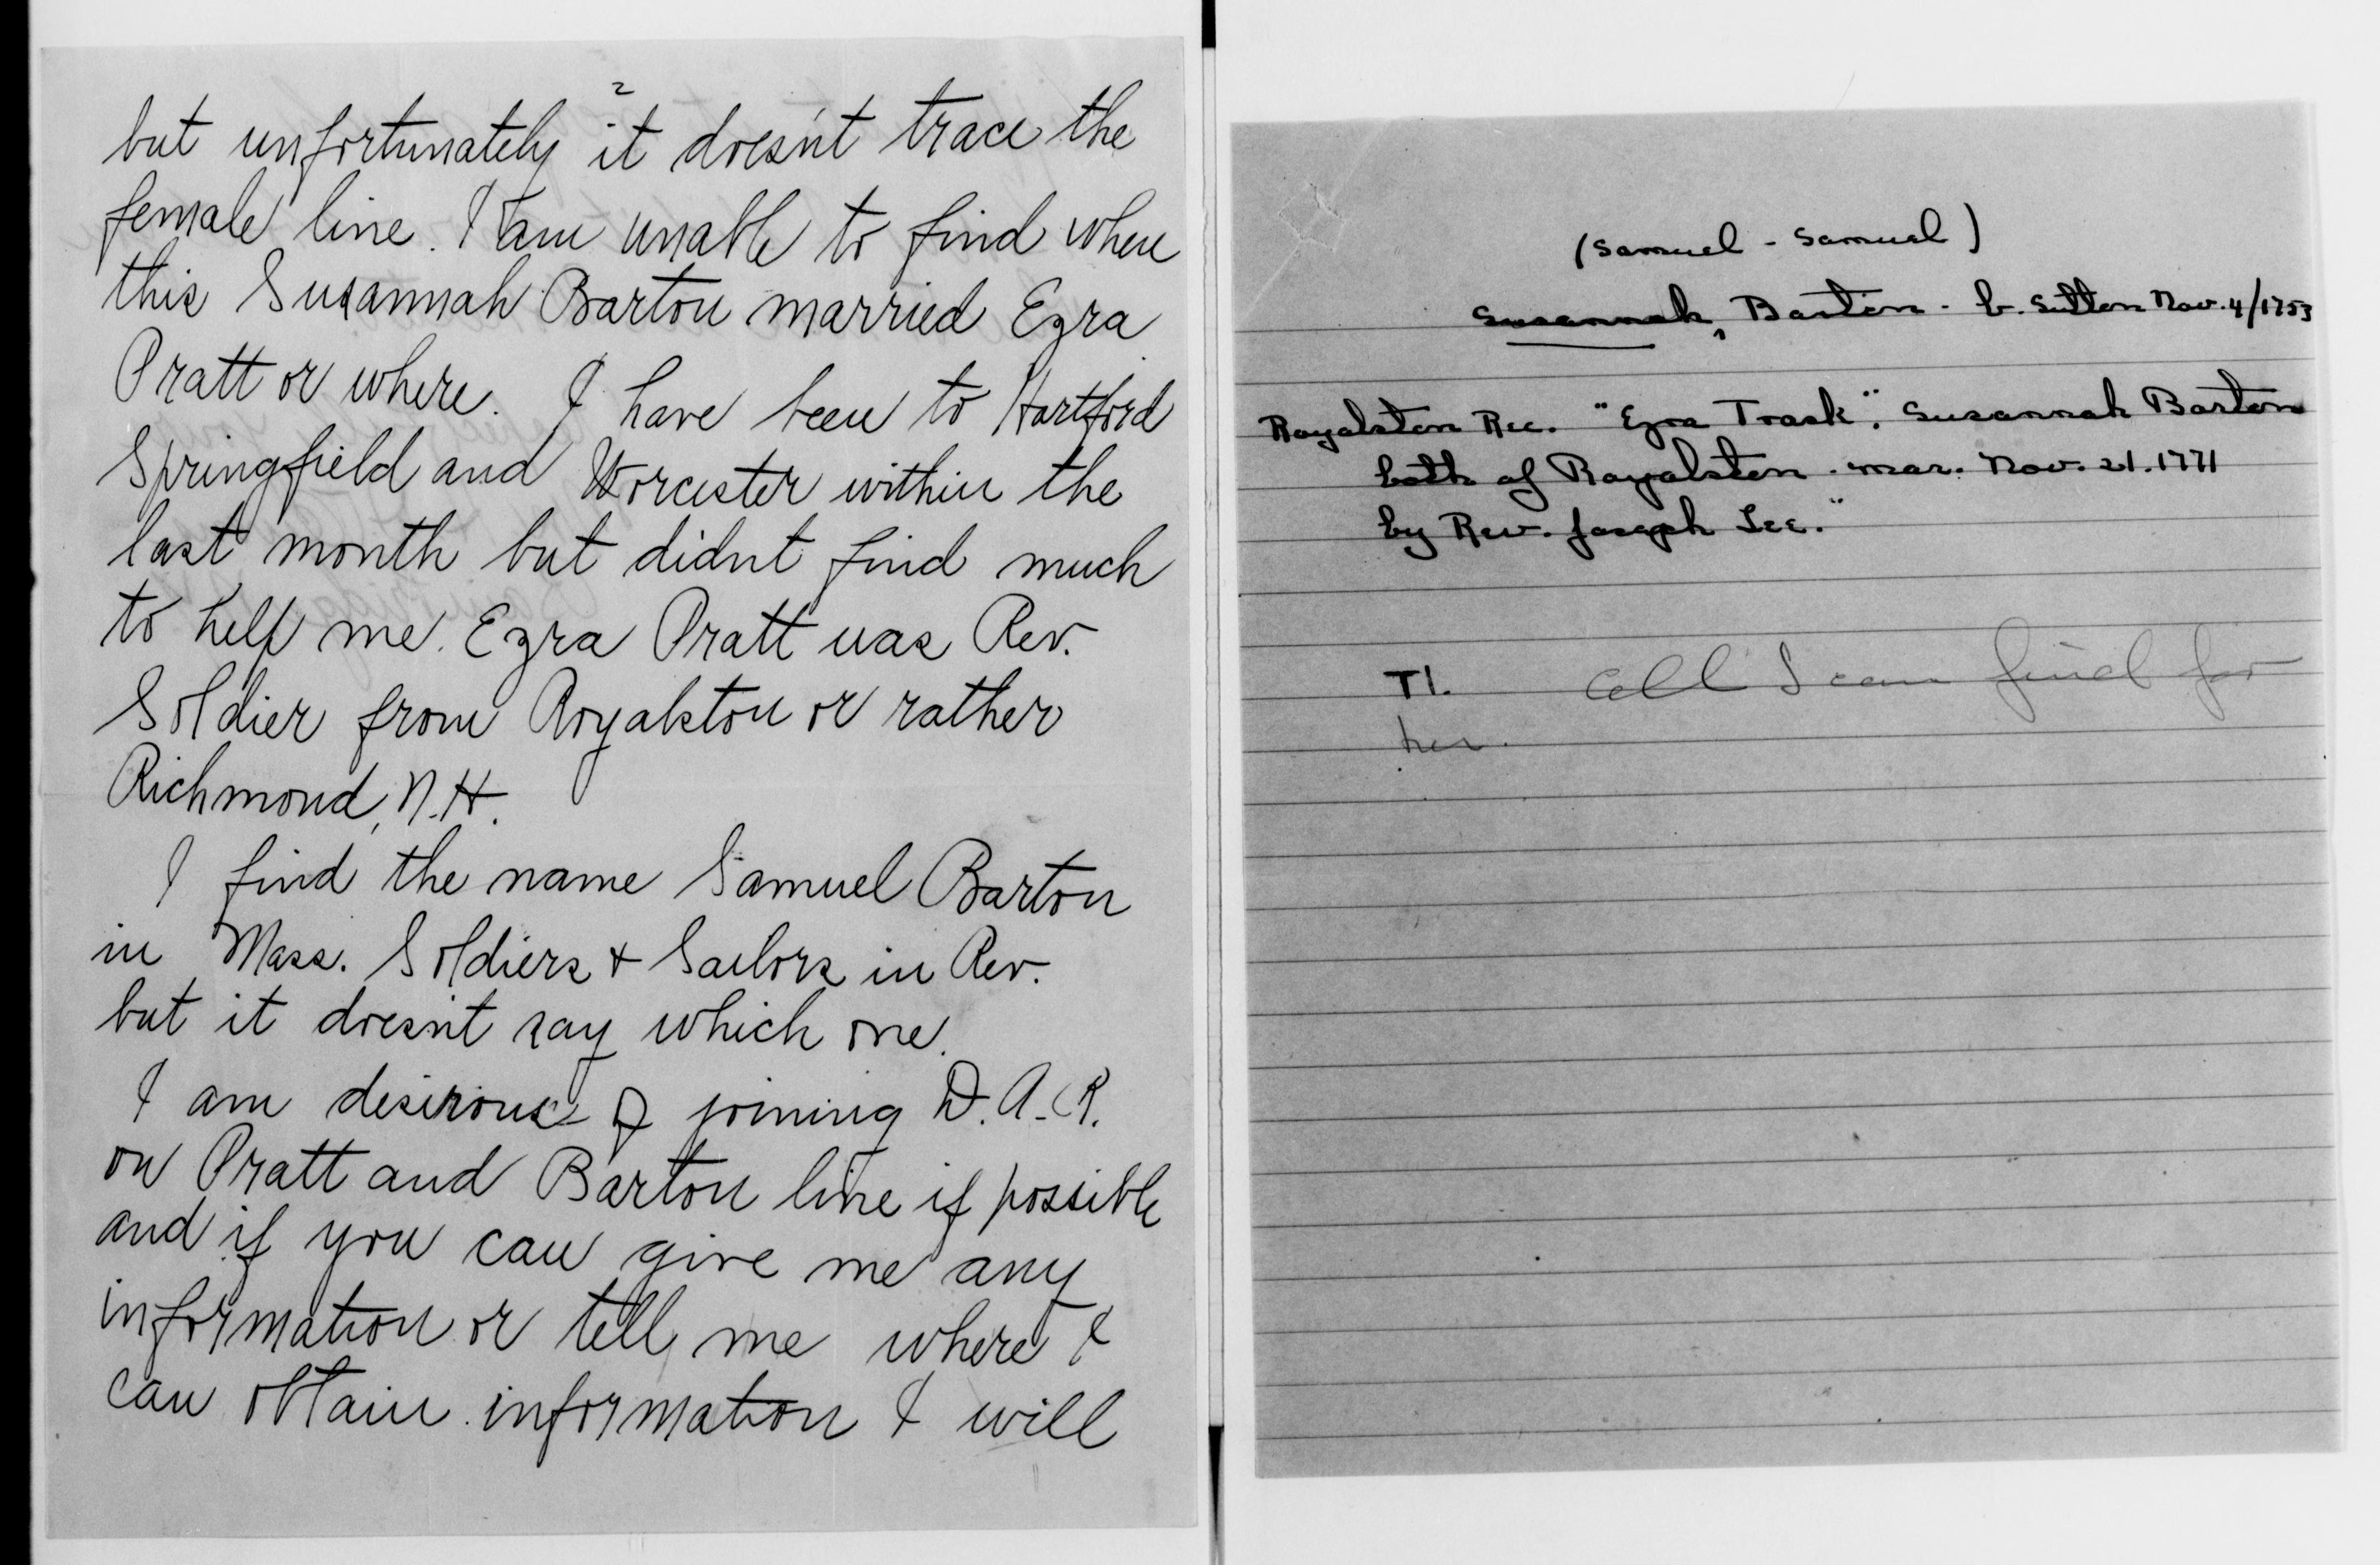 2
but unfortunately it doesn't trace the
female line. I am unable to find when
this Susannah Barton married Ezra
Pratt or where. I have been to Hartford
Springfield and Worcester within the
last month but didnt find much
to help me. Ezra Pratt was Rev.
Soldier from Royalston or rather
Richmond, N.H.
I find the name Samuel Barton
in Mass. Soldiers & Sailors in Rev.
but it doesn't say which one.
I am desirous of joining D.A.R.
on Pratt and Barton line if possible
and if you can give me any
information or tell me where I
can obtain information I will
(Samuel - Samuel)
Susannah, Barton - b. Sutton Nov. 4/1753
Royalston Rec. "Ezra Trask". Susannah Barton
both of Royalston. mar. Nov. 21. 1771
by Rev. Joseph Lee."
all I can find for
her.